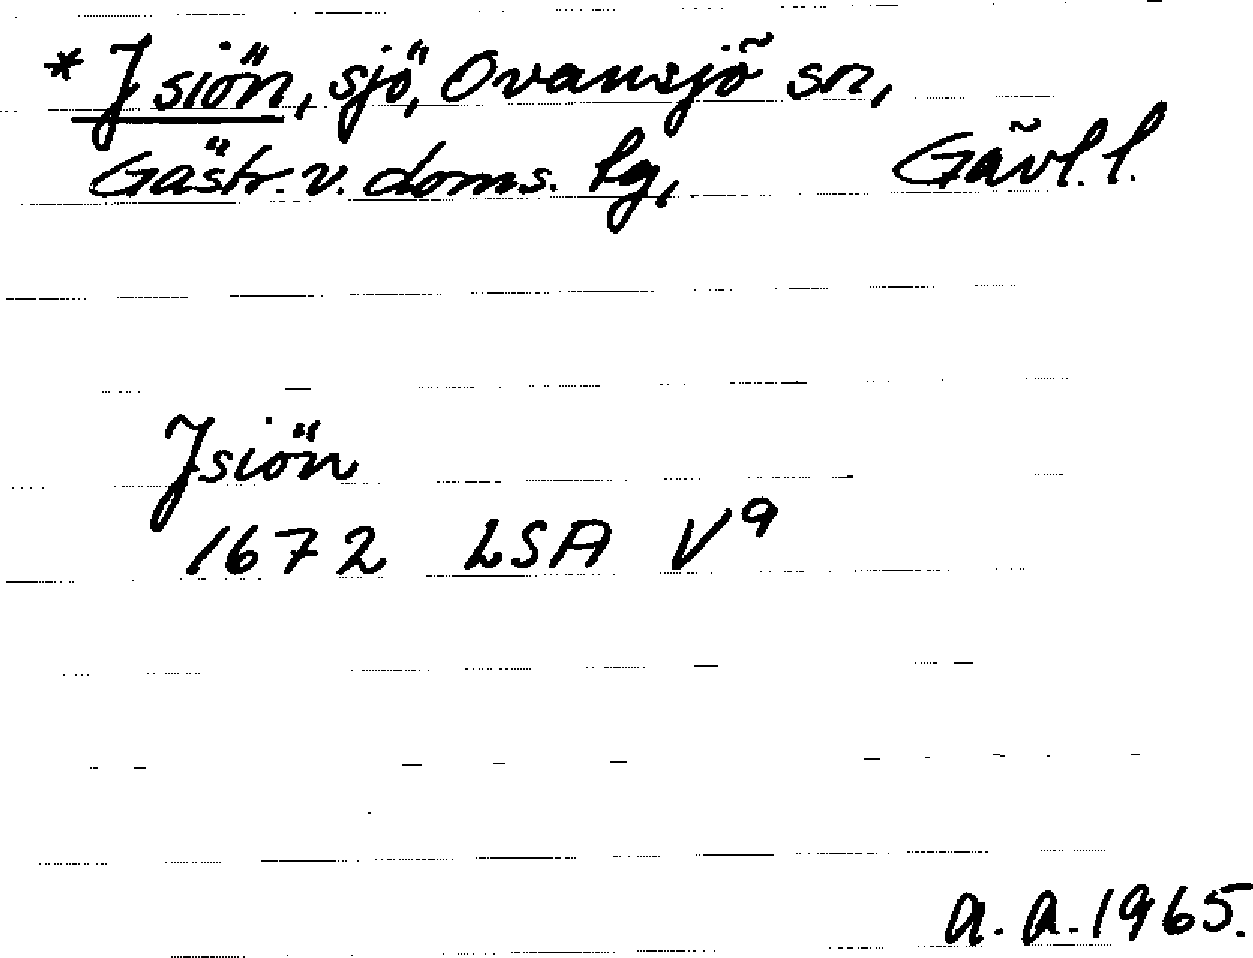 *Jsiön, sjö, Ovansjö sn,
Gästr. v. doms. lg, Gävl. l.
Jsiön
1672 LSA V9
A. A. 1965.